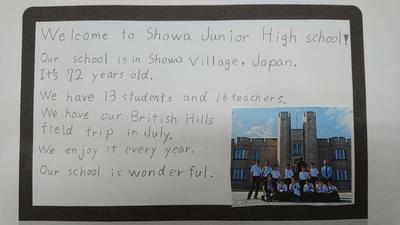 Welcome to Showa Junior High school!
Our school is in Showa Village, Japan.
It's 72 years old.
We have 13 students and 16 teachers.
We have our British Hills
field trip in July.
We enjoy it every year.
Our school is wonderful.